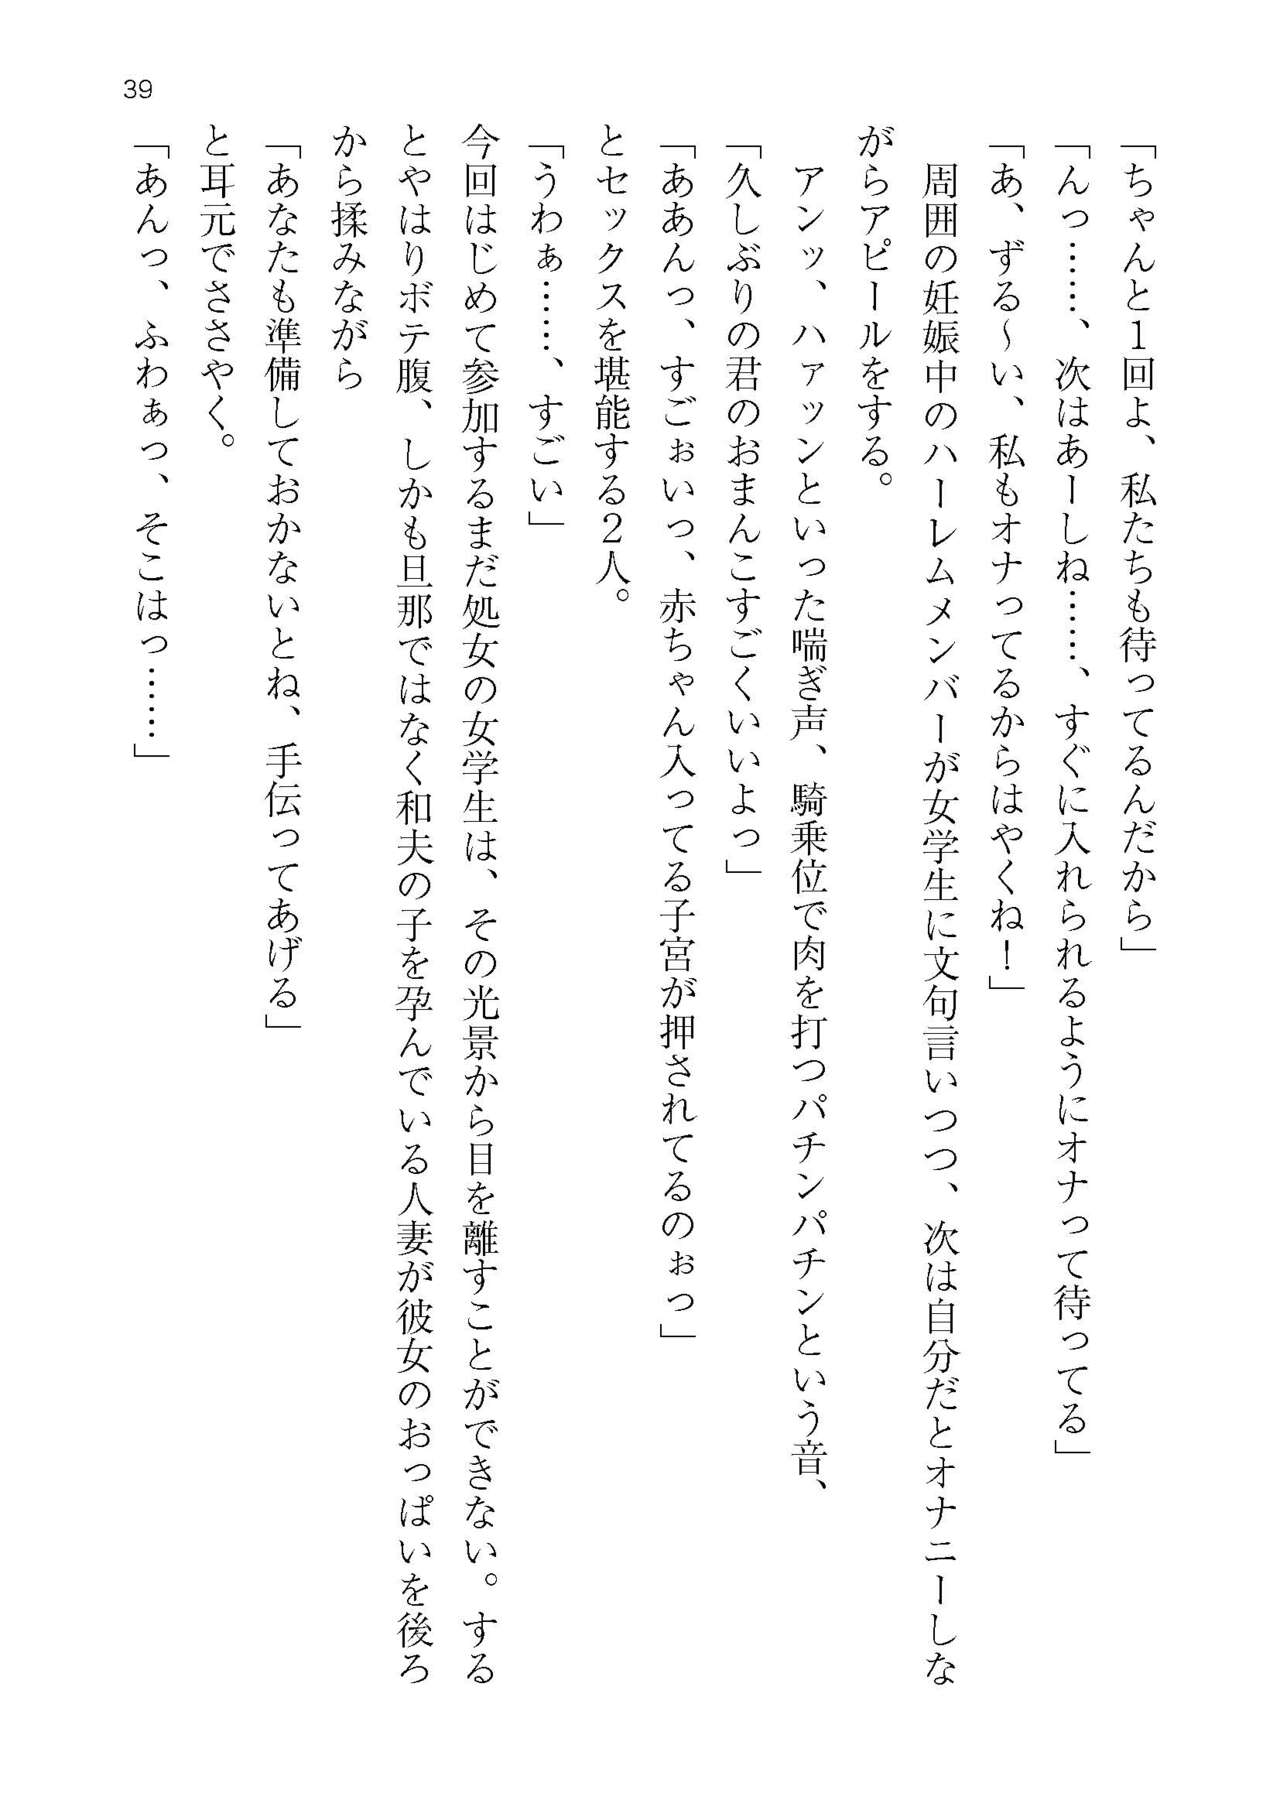 「ちゃんと1回よ、私たちも待ってるんだから」
「んっ……、次はあーしね……、すぐに入れられるようにオナって待ってる」
「あ、ずる～い、私もオナってるからはやくね！」
　周囲の妊娠中のハーレムメンバーが女学生に文句言いつつ、次は自分だとオナニーしな
がらアピールをする。
　アンッ、ハァッンといった喘ぎ声、騎乗位で肉を打つパチンパチンという音、
「久しぶりの君のおまんこすごくいいよっ」
「ああんっ、すごぉいっ、赤ちゃん入ってる子宮が押されてるのぉっ」
とセックスを堪能する2人。
「うわぁ……、すごい」
今回はじめて参加するまだ処女の女学生は、その光景から目を離すことができない。する
とやはりボテ腹、しかも旦那ではなく和夫の子を孕んでいる人妻が彼女のおっぱいを後ろ
から揉みながら
「あなたも準備しておかないとね、手伝ってあげる」
と耳元でささやく。
「あんっ、ふわぁっ、そこはっ……」
39